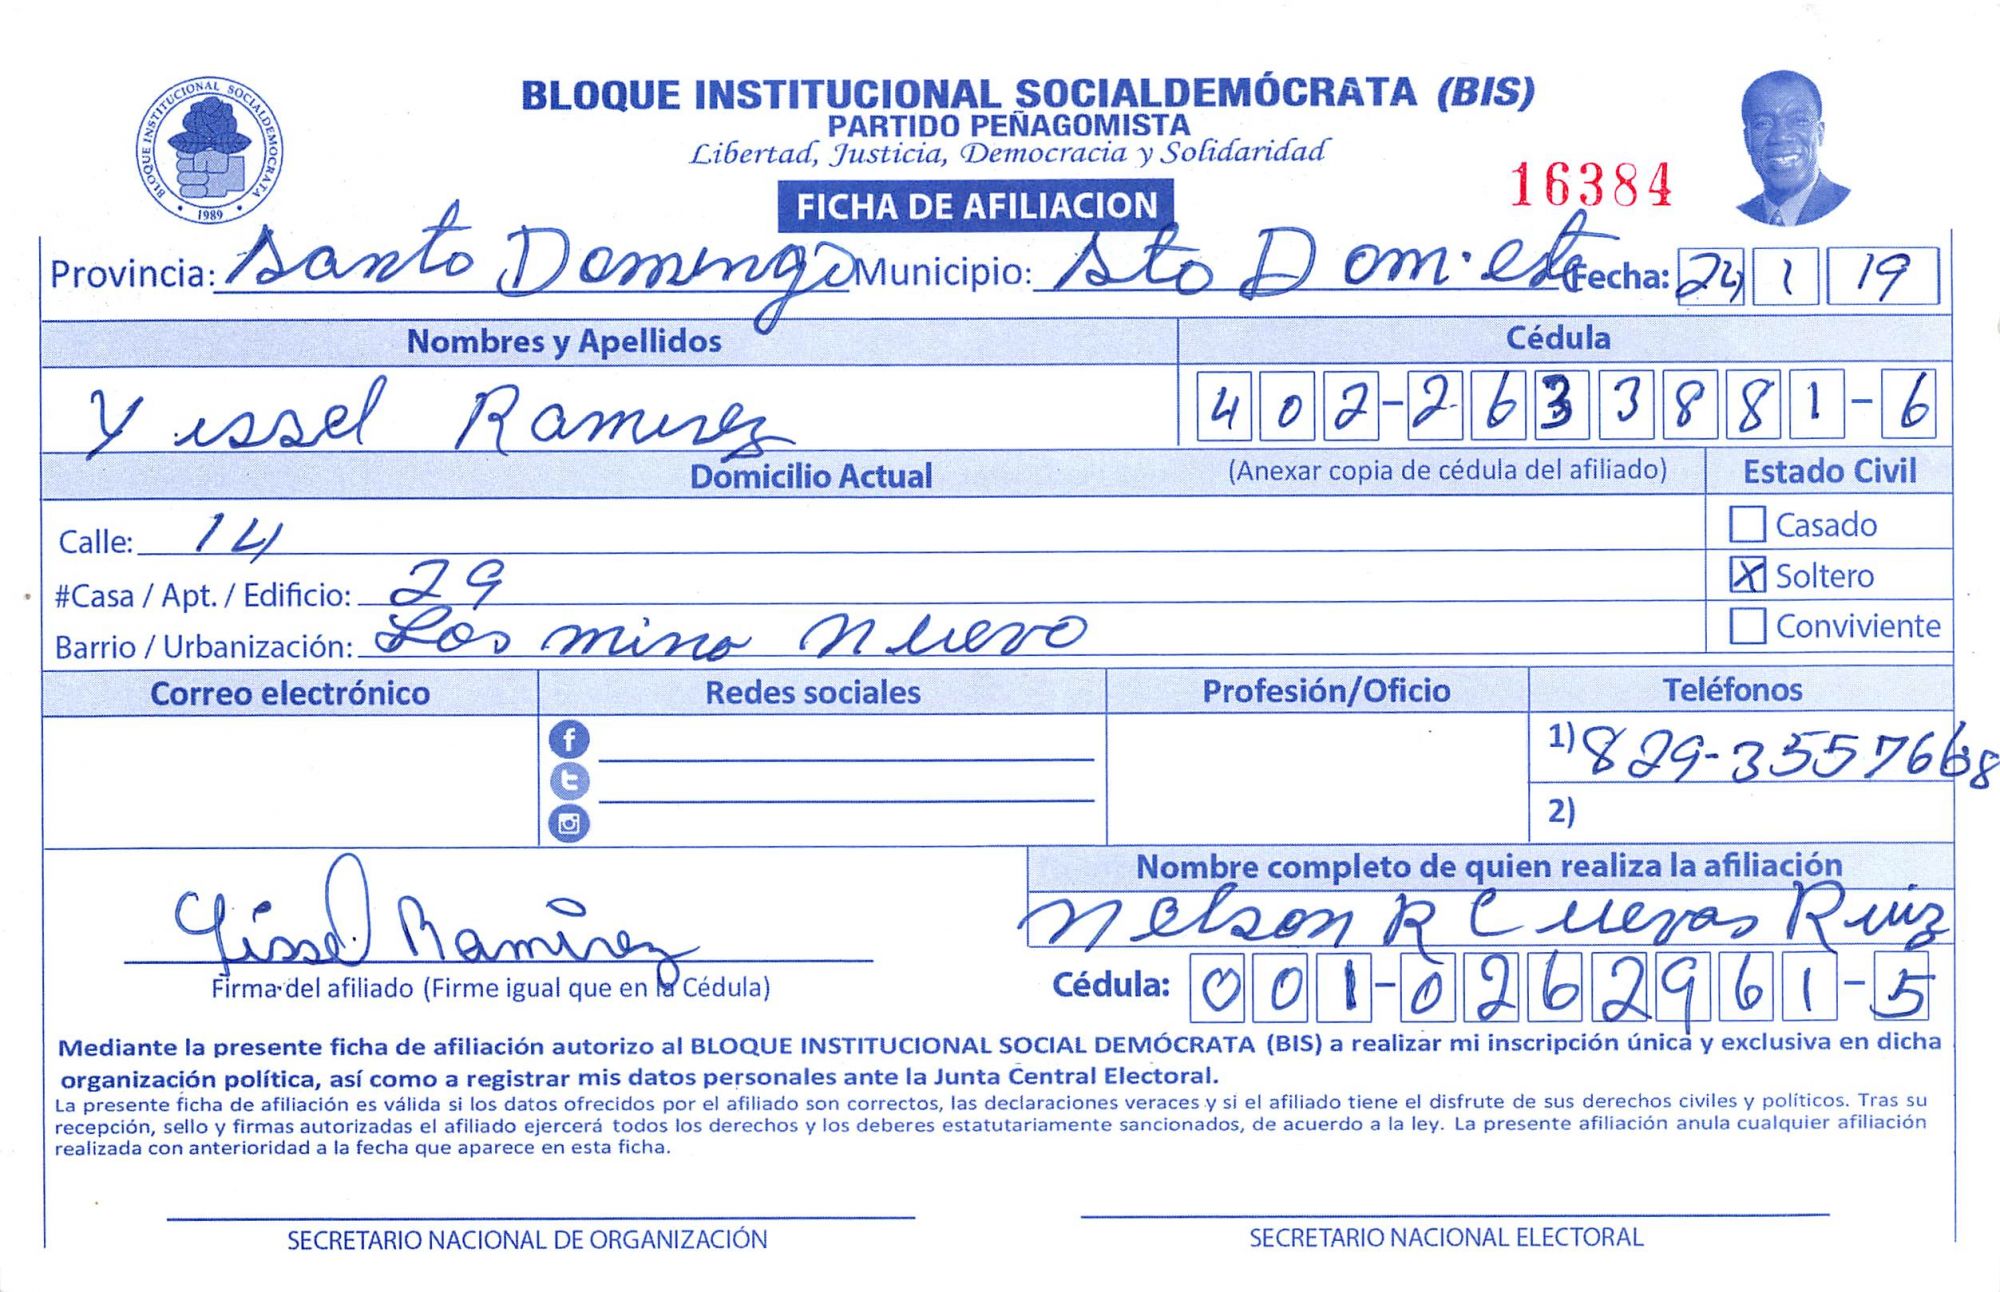 BLOQUE INSTITUCIONAL SOCIALDEMÓCRATA (BIS)
PARTIDO PEÑAGOMISTA
Libertad, Justicia, Democracia y Solidaridad
BLOQUE INSTITUCIONAL SOCIALDEMOCRATA
1989
16384
FICHA DE AFILIACION
Provincia: Santo Domingo Municipio: Sto Dom. este Fecha: 24 1 19
Nombres y Apellidos Cédula
Yissel Ramirez 402-2633881-6
Domicilio Actual (Anexar copia de cédula del afiliado) Estado Civil
Calle: 14 Casado
#Casa / Apt. / Edificio: 29 X Soltero
Barrio / Urbanización: Los mino nuevo Conviviente
Correo electrónico Redes sociales Profesión/Oficio Teléfonos
1) 829-3557668
2)
Nombre completo de quien realiza la afiliación
Yissel Ramirez Nelson R Cuevas Ruiz
Firma del afiliado (Firme igual que en la Cédula) Cédula: 001-0262961-5
Mediante la presente ficha de afiliación autorizo al BLOQUE INSTITUCIONAL SOCIAL DEMÓCRATA (BIS) a realizar mi inscripción única y exclusiva en dicha
organización política, así como a registrar mis datos personales ante la Junta Central Electoral.
La presente ficha de afiliación es válida si los datos ofrecidos por el afiliado son correctos, las declaraciones veraces y si el afiliado tiene el disfrute de sus derechos civiles y políticos. Tras su
recepción, sello y firmas autorizadas el afiliado ejercerá todos los derechos y los deberes estatutariamente sancionados, de acuerdo a la ley. La presente afiliación anula cualquier afiliación
realizada con anterioridad a la fecha que aparece en esta ficha.
SECRETARIO NACIONAL DE ORGANIZACIÓN SECRETARIO NACIONAL ELECTORAL